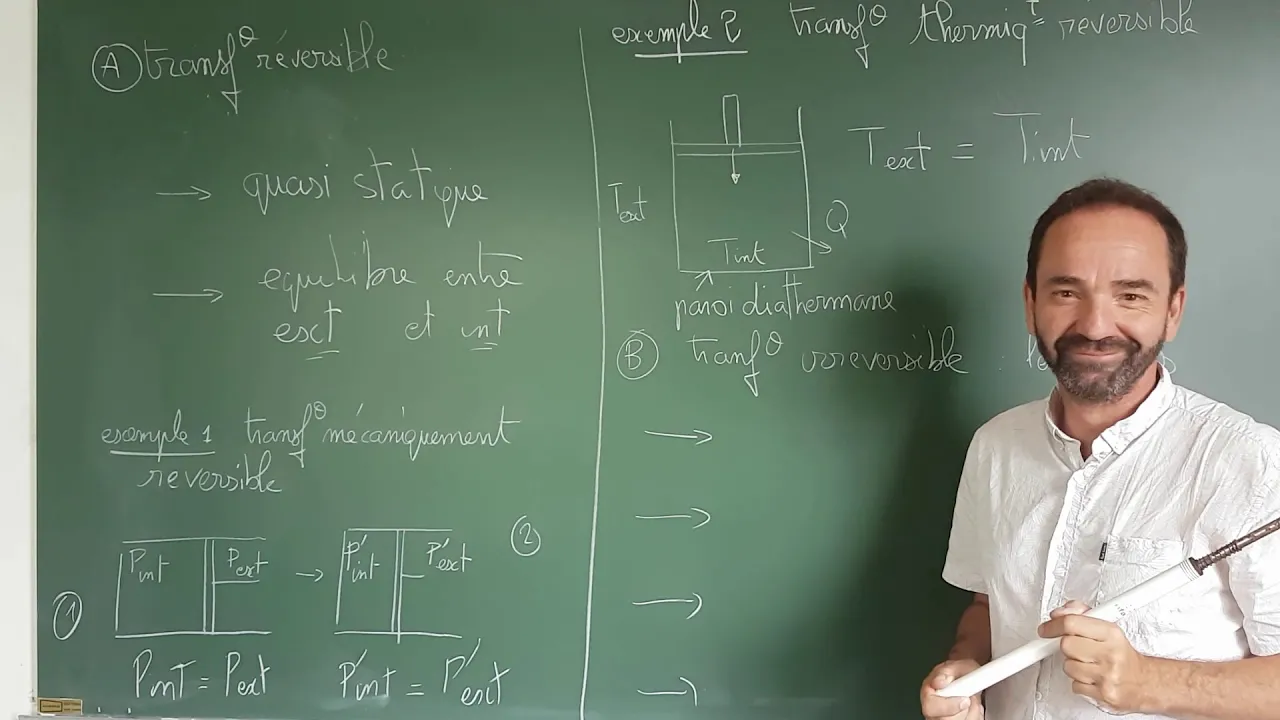 A transf° réversible
→ quasi statique
→ equilibre entre
ext et int
exemple 1 transf° mécaniquement
reversible
Pint Pext → P'int P'ext
1 2
Pint = Pext P'int = P'ext
exemple 2 transf° thermiqt réversible
Text = Tint
Text
Q
Tint
paroi diathermane
B tranf° irreversible :
→
→
→
→